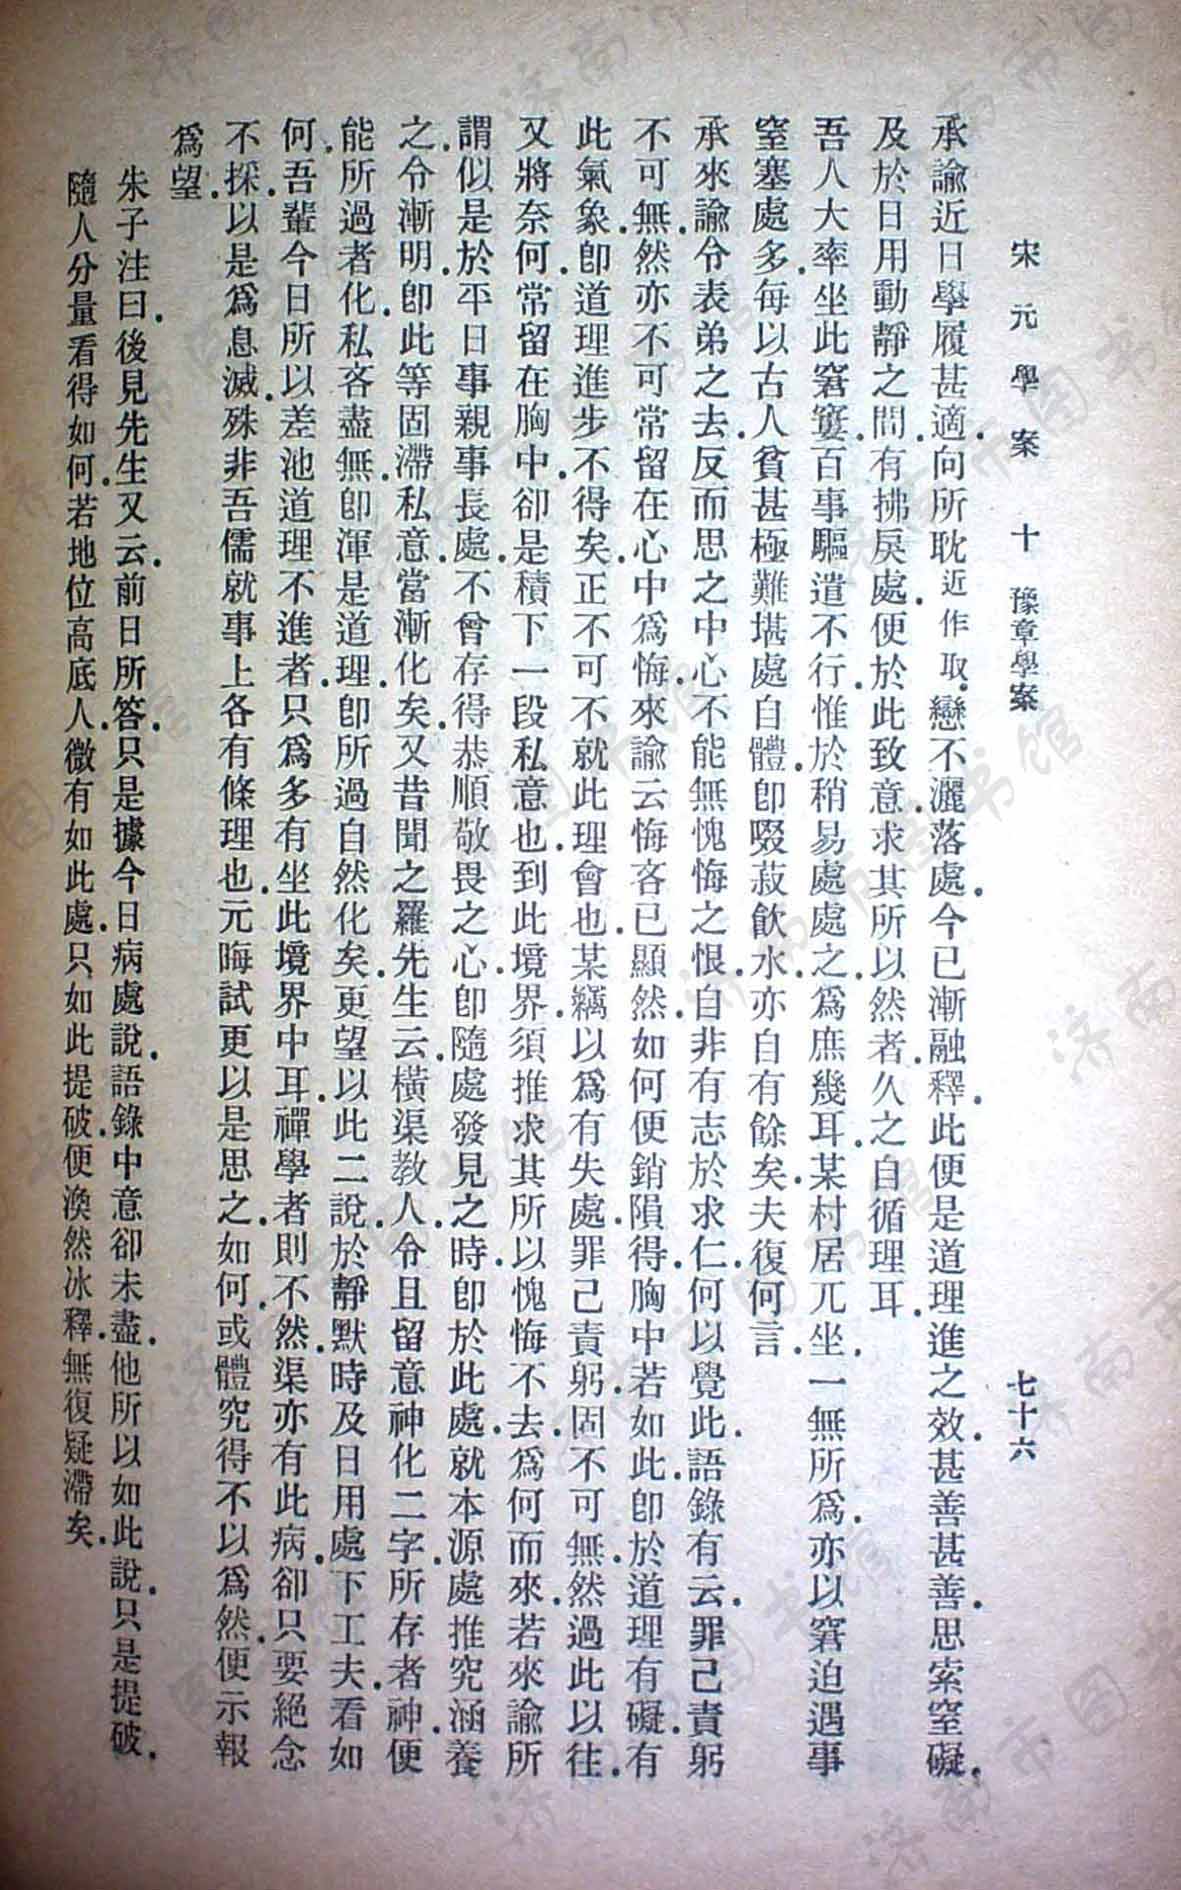 宋元學案 十 豫章學案 七十六
承諭近日學履甚適.向所耽近作取.戀不灑落處.今已漸融釋.此便是道理進之效.甚善甚善.思索窒礙.
及於日用動靜之間.有拂戾處.便於此致意.求其所以然者.久之自循理耳.
吾人大率坐此窘窶.百事驅遣不行.惟於稍易處處之.為庶幾耳.某村居兀坐.一無所為.亦以窘迫遇事
窒塞處多.每以古人貧甚極難堪處自體.卽啜菽飲水.亦自有餘矣.夫復何言.
承來諭令表弟之去.反而思之.中心不能無愧悔之恨.自非有志於求仁.何以覺此.語錄有云.罪己責躬
不可無.然亦不可常留在心中為悔.來諭云悔吝已顯然.如何便銷隕得.胸中若如此.卽於道理有礙.有
此氣象.卽道理進步不得矣.正不可不就此理會也.某竊以為有失處.罪己責躬.固不可無.然過此以往.
又將奈何.常留在胸中.卻是積下一段私意也.到此境界.須推求其所以愧悔不去.為何而來.若來諭所
謂似是於平日事親事長處.不曾存得恭順敬畏之心.卽隨處發見之時.卽於此處.就本源處推究涵養
之.令漸明.卽此等固滯私意.當漸化矣.又昔聞之羅先生云.橫渠教人.令且留意神化二字.所存者神.便
能所過者化.私吝盡無.卽渾是道理.卽所過自然化矣.更望以此二說.於靜默時及日用處下工夫.看如
何.吾輩今日所以差池.道理不進者.只為多有坐此境界中耳.禪學者則不然.渠亦有此病.卻只要絕念
不採.以是為息滅.殊非吾儒就事上各有條理也.元晦試更以是思之.如何.或體究得不以為然.便示報
為望.
朱子注曰.後見先生.又云.前日所答.只是據今日病處說.語錄中意卻未盡.他所以如此說.只是提破.
隨人分量看得如何.若地位高底人.微有如此處.只如此提破.便渙然冰釋.無復疑滯矣.